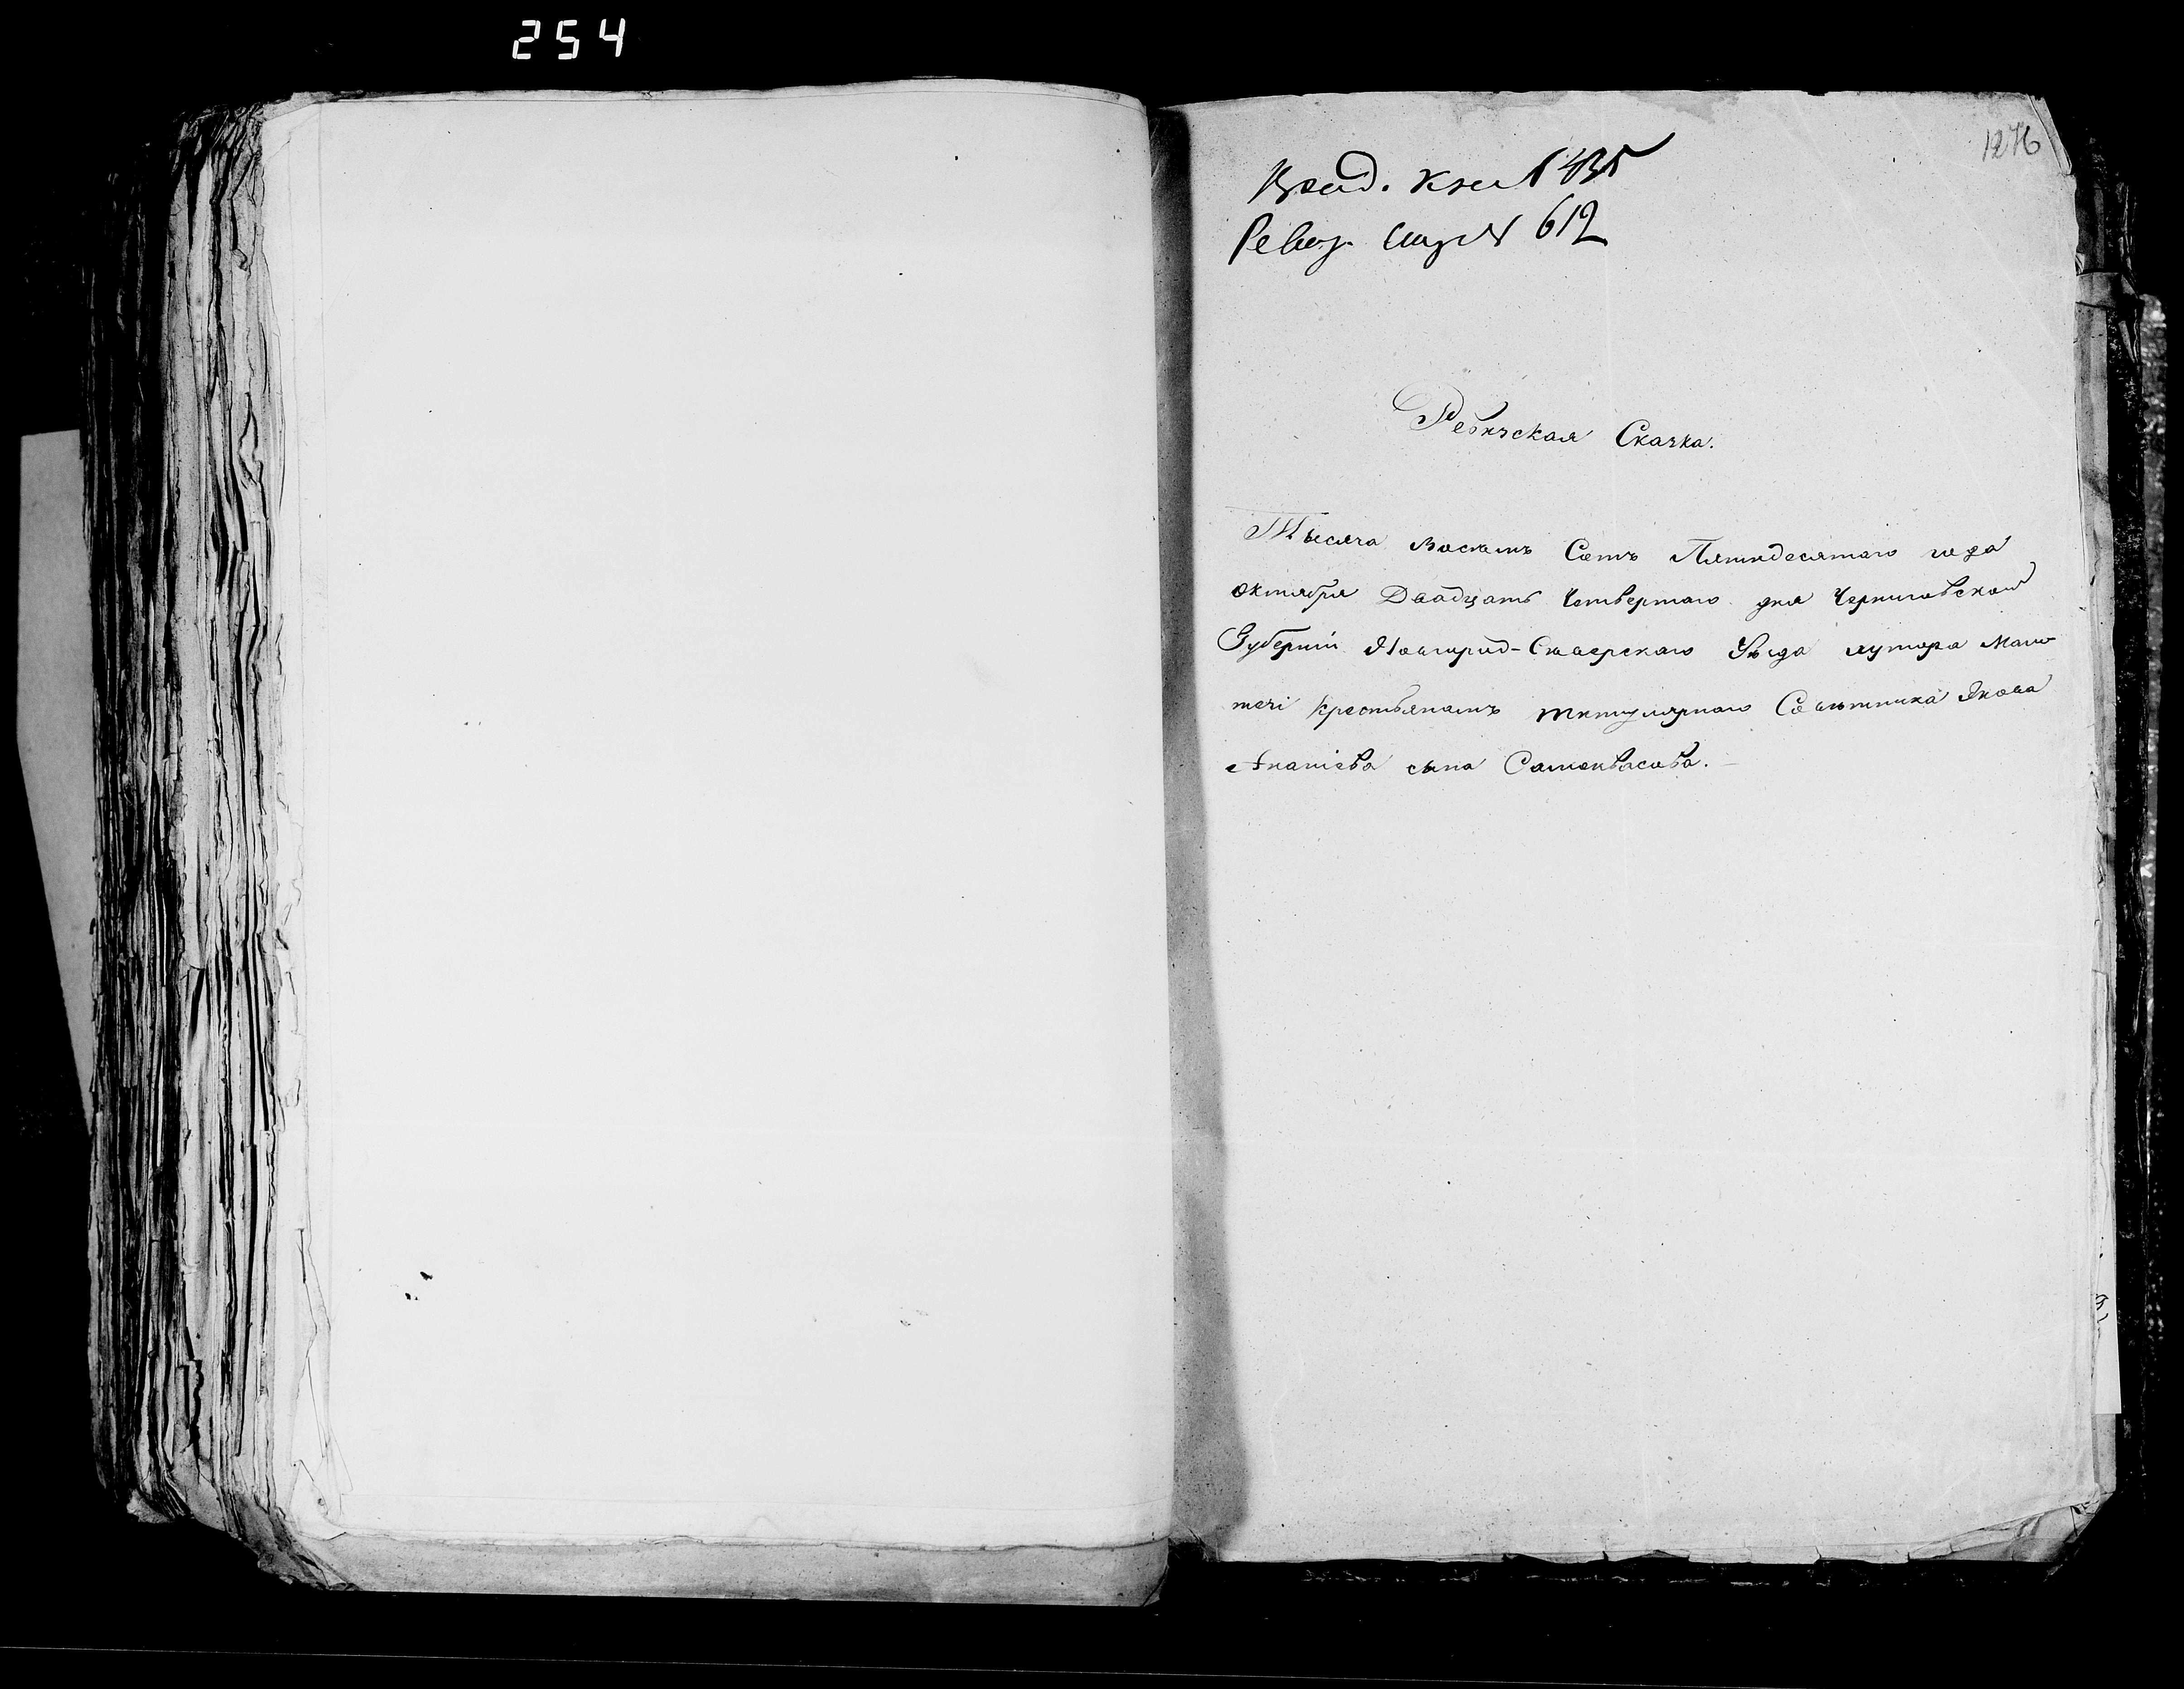 254
1276
Вход. Кн. № 435
Ревиз. Сказ. № 612
Ревизская Сказка.
Тысяча Восемь Сотъ Пятидесятаго года
Октября Двадцать Четвертаго дня Черниговской
Губерніи Новгород-Северскаго Уѣзда хутора Мало
течі Крестьянамъ титулярнаго Советника Якова
Ананіева сына Самоквасова.